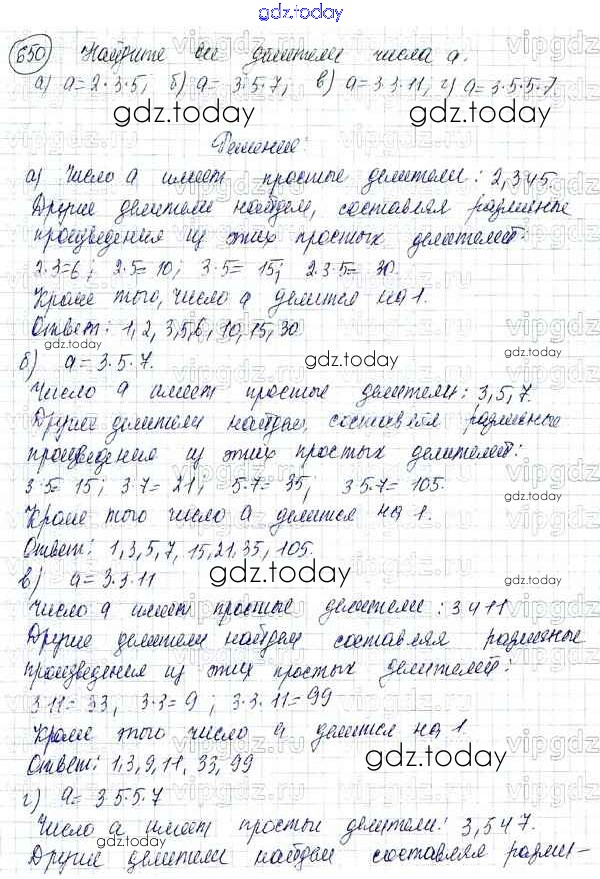 gdz.today
650 Найдите все делители числа a.
а) a=2·3·5; б) a=3·5·7; в) a=3·3·11, г) a=3·5·5·7
gdz.today gdz.today
Решение:
а) Число a имеет простые делители: 2,3 и 5.
Другие делители найдем, составляя различные
произведения из этих простых делителей:
2·3=6; 2·5=10; 3·5=15; 2·3·5=30.
Кроме того, число a делится на 1.
Ответ: 1,2,3,5,6,10,15,30
б) a=3·5·7.
gdz.today gdz.today
Число a имеет простые делители: 3,5,7.
Другие делители найдем, составляя различные
произведения из этих простых делителей:
3·5=15; 3·7=21; 5·7=35; 3·5·7=105.
gdz.today
Кроме того число a делится на 1.
Ответ: 1,3,5,7,15,21,35,105.
в) a=3·3·11
gdz.today
Число a имеет простые делители: 3 и 11
Другие делители найдем составляя различные
произведения из этих простых делителей:
3·11=33; 3·3=9; 3·3·11=99
Кроме того число a делится на 1.
Ответ: 1,3,9,11,33,99
gdz.today
г) a=3·5·5·7
Число a имеет простые делители: 3,5 и 7.
gdz.today
Другие делители найдем составляя различ-